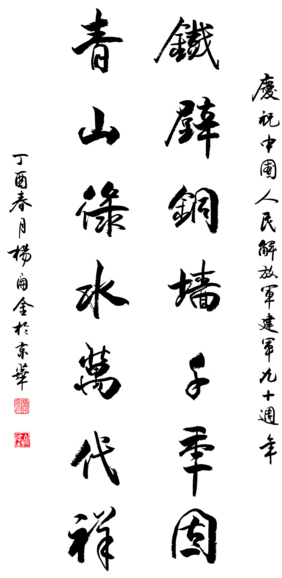 慶祝中國人民解放軍建軍九十週年
鐵壁銅墻千年固
青山綠水萬代祥
丁酉春月楊金於京華